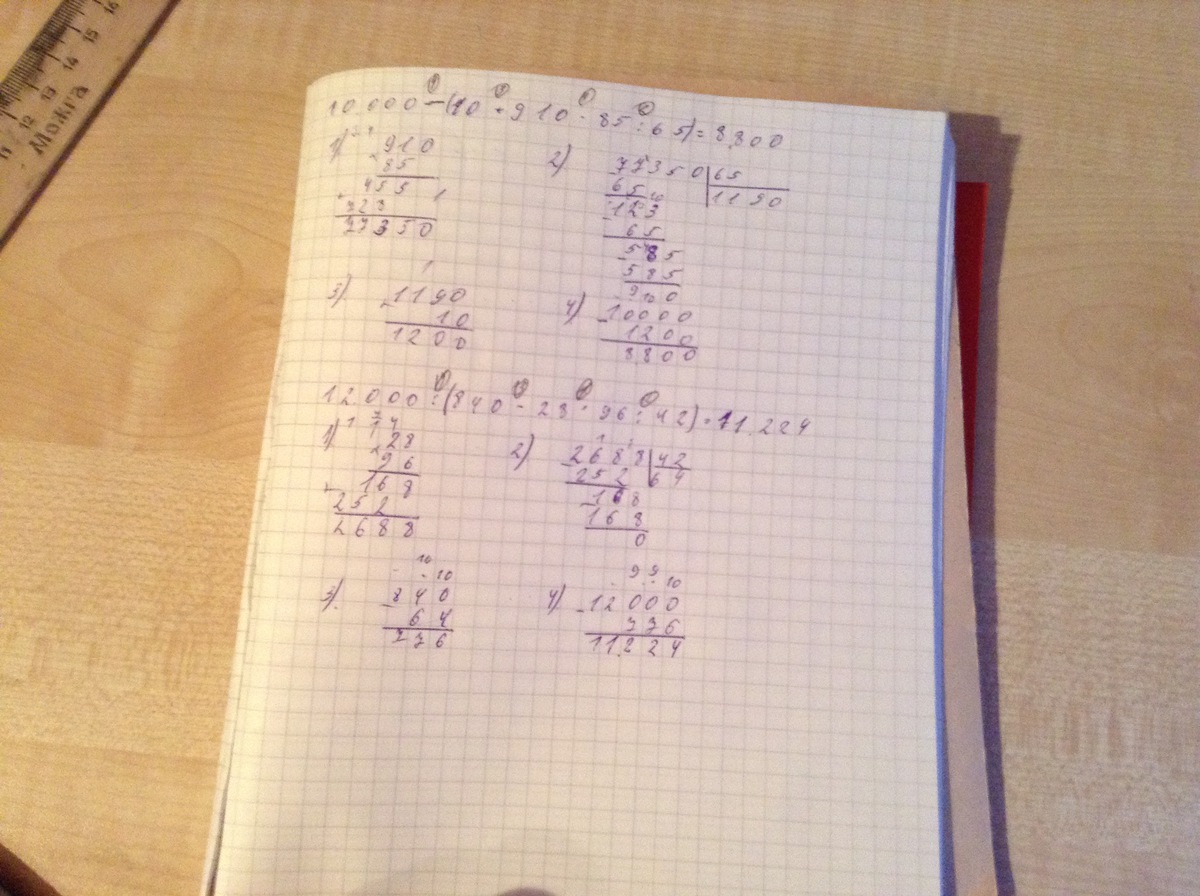 11 12 13 14 15 16
Можга
10.000-(10+910·85:65)=8.800
1) 910
85
455
723
77350
2) 77350 65
65 1190
123
65
585
585
0
3) 1190
10
1200
4) 10000
1200
8.800
12.000:(840-28·96:42)=11.224
1) 28
96
168
252
2688
2) 2688 42
252 64
168
168
0
3) 840
64
776
4) 12000
776
11.224